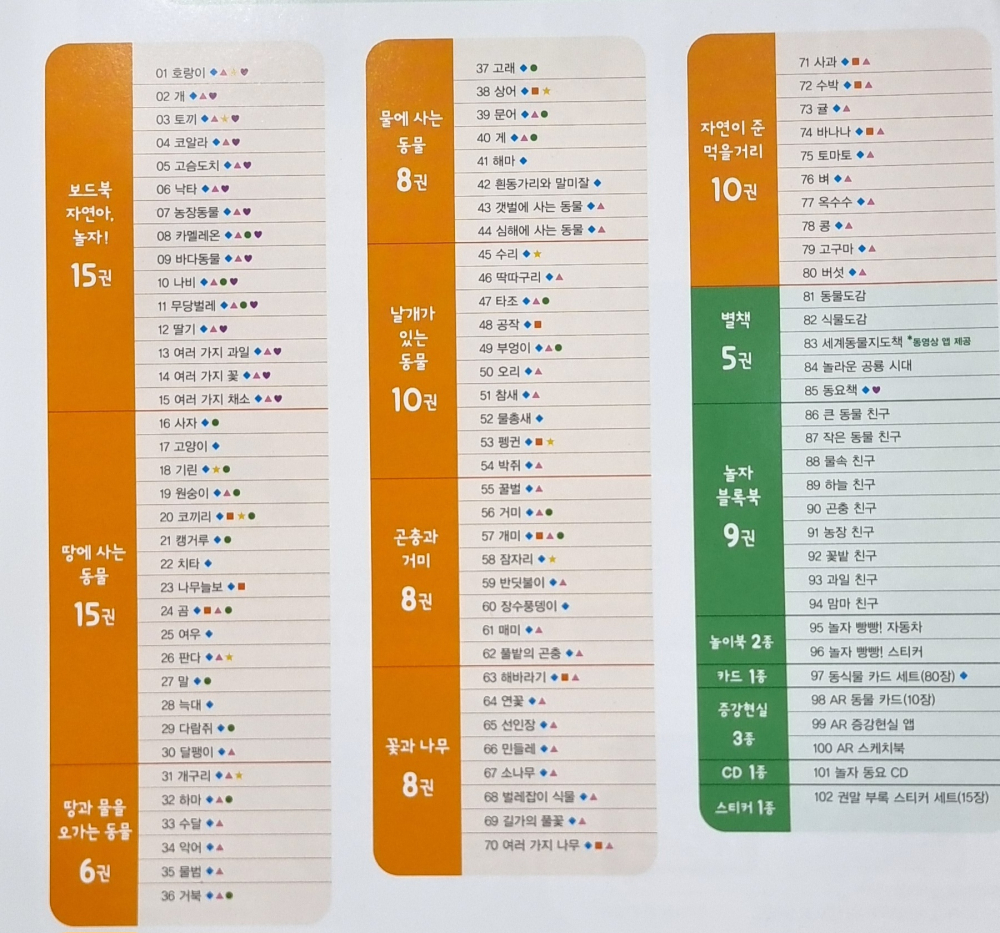 보드북
자연아,
놀자!
15권
01 호랑이 ◆▲★♥
02 개 ◆▲♥
03 토끼 ◆▲★♥
04 코알라 ◆▲♥
05 고슴도치 ◆▲♥
06 낙타 ◆▲♥
07 농장동물 ◆▲♥
08 카멜레온 ◆▲●♥
09 바다동물 ◆▲♥
10 나비 ◆▲●♥
11 무당벌레 ◆▲●♥
12 딸기 ◆▲♥
13 여러 가지 과일 ◆▲♥
14 여러 가지 꽃 ◆▲♥
15 여러 가지 채소 ◆▲♥
땅에 사는
동물
15권
16 사자 ◆●
17 고양이 ◆
18 기린 ◆★●
19 원숭이 ◆▲●
20 코끼리 ◆■★●
21 캥거루 ◆●
22 치타 ◆
23 나무늘보 ◆■
24 곰 ◆■▲●
25 여우 ◆
26 판다 ◆▲★
27 말 ◆●
28 늑대 ◆
29 다람쥐 ◆●
30 달팽이 ◆▲
땅과 물을
오가는 동물
6권
31 개구리 ◆▲★
32 하마 ◆▲●
33 수달 ◆▲
34 악어 ◆▲
35 물범 ◆▲
36 거북 ◆▲●
물에 사는
동물
8권
37 고래 ◆●
38 상어 ◆■★
39 문어 ◆▲●
40 게 ◆▲●
41 해마 ◆
42 흰동가리와 말미잘 ◆
43 갯벌에 사는 동물 ◆▲
44 심해에 사는 동물 ◆▲
날개가
있는
동물
10권
45 수리 ◆★
46 딱따구리 ◆▲
47 타조 ◆▲●
48 공작 ◆■
49 부엉이 ◆▲●
50 오리 ◆▲
51 참새 ◆▲
52 물총새 ◆
53 펭귄 ◆■★
54 박쥐 ◆▲
곤충과
거미
8권
55 꿀벌 ◆▲
56 거미 ◆▲●
57 개미 ◆■▲●
58 잠자리 ◆★
59 반딧불이 ◆▲
60 장수풍뎅이 ◆
61 매미 ◆▲
62 풀밭의 곤충 ◆▲
꽃과 나무
8권
63 해바라기 ◆■▲
64 연꽃 ◆▲
65 선인장 ◆▲
66 민들레 ◆▲
67 소나무 ◆▲
68 벌레잡이 식물 ◆▲
69 길가의 풀꽃 ◆▲
70 여러 가지 나무 ◆■▲
자연이 준
먹을거리
10권
71 사과 ◆■▲
72 수박 ◆■▲
73 귤 ◆▲
74 바나나 ◆■▲
75 토마토 ◆▲
76 벼 ◆▲
77 옥수수 ◆▲
78 콩 ◆▲
79 고구마 ◆▲
80 버섯 ◆▲
별책
5권
81 동물도감
82 식물도감
83 세계동물지도책 *동영상 앱 제공
84 놀라운 공룡 시대
85 동요책 ◆♥
놀자
블록북
9권
86 큰 동물 친구
87 작은 동물 친구
88 물속 친구
89 하늘 친구
90 곤충 친구
91 농장 친구
92 꽃밭 친구
93 과일 친구
94 맘마 친구
놀이북 2종
95 놀자 빵빵! 자동차
96 놀자 빵빵! 스티커
카드 1종
97 동식물 카드 세트(80장) ◆
증강현실
3종
98 AR 동물 카드(10장)
99 AR 증강현실 앱
100 AR 스케치북
CD 1종
101 놀자 동요 CD
스티커 1종
102 권말 부록 스티커 세트(15장)